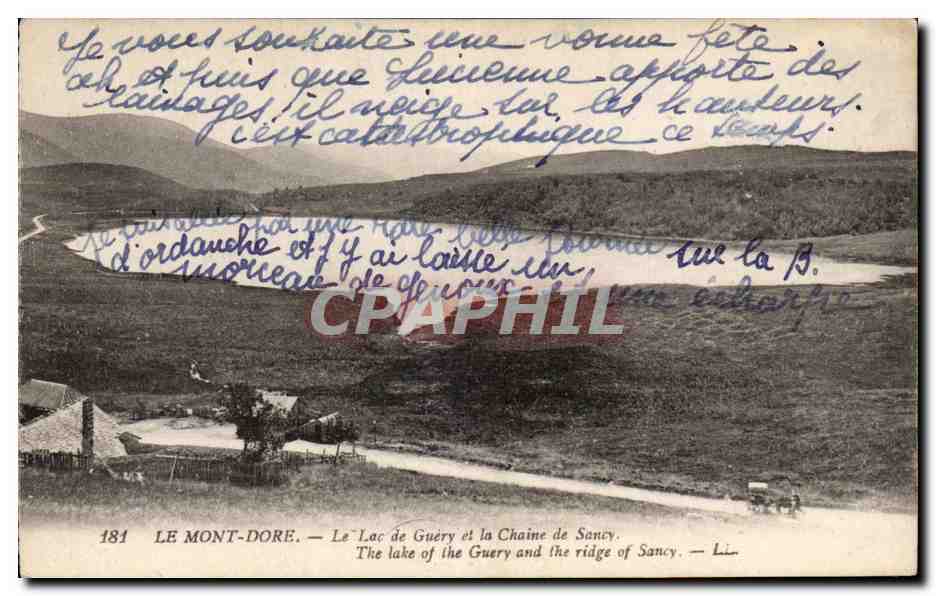 Je vous souhaite une vonne fete
ah et puis que Lucienne apporte des
laisages, il neige sur les hauteurs.
c'est catastrophique ce temps.
je suis par une rare belle sur la B.
d'ordanche et j'y ai laisse un
morceau de genoux et une echarpe
CPARPHIL
181 LE MONT-DORE. — Le Lac de Guéry et la Chaine de Sancy.
The lake of the Guery and the ridge of Sancy. — LL